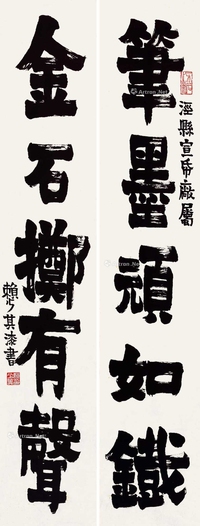 筆墨頑如鐵
金石擲有聲
涇縣宣帋廠屬
賴少其漆書